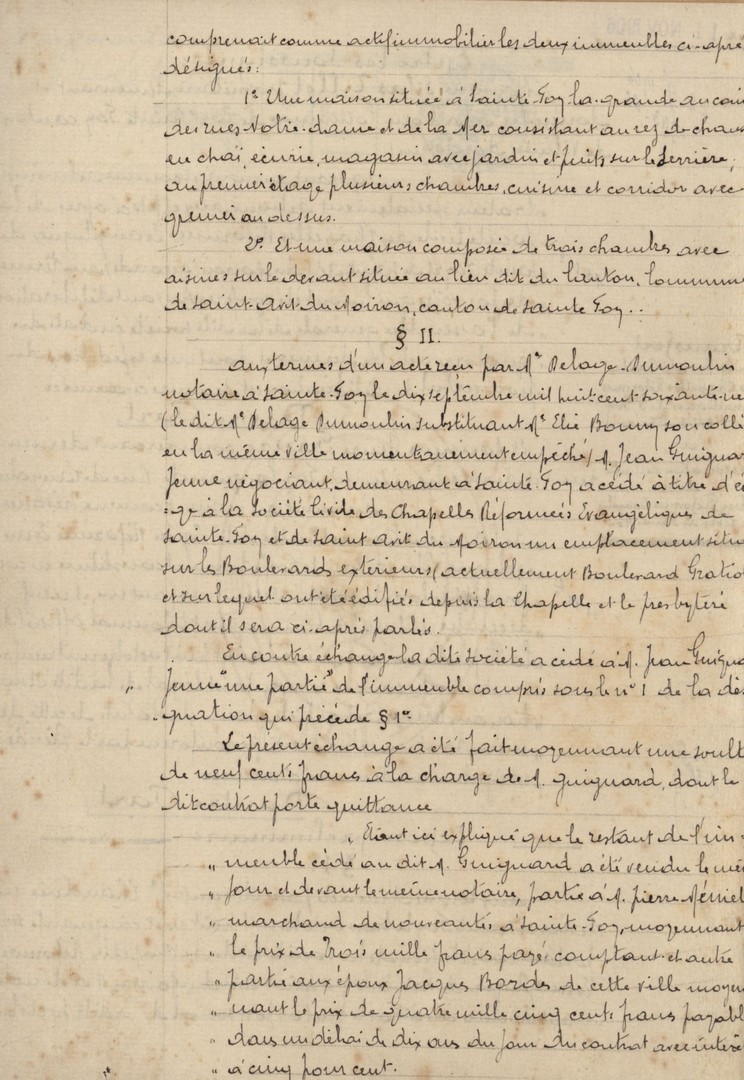 comprenait comme actif immobilier les deux immeubles ci-apré
désignés:
1º Une maison située à Sainte-Foy-la-grande au coin
des rues Notre-dame et de la Mer consistant au rez de chaus
en chaî, écurie, magasin avec jardin et puits sur le derrière,
au premier étage plusieurs chambres, cuisine et corridor avec
grenier au dessus.
2º. Et une maison composée de trois chambres avec
aisines sur le devant située au lieu dit du Canton, Commune
de Saint-Avit du Moiron, canton de Sainte Foy..
§ II.
aux termes d'un acte reçu par Me Pelage-Dumoulin
notaire à Sainte-Foy le dix septembre mil huit-cent soixante-ne
(le dit Me Pelage Dumoulin substituant Me Elie Bonny son collè
en la même ville momentanément empêché) M. Jean Guignar
Jeune négociant, demeurant à Sainte-Foy a cédé à titre d'éc
=ge à la Société Civile des Chapelles Réformées Evangéliques de
Sainte-Foy et de Saint Avit du Moiron un emplacement situé
sur les Boulevards extérieurs (actuellement Boulevard Gratio
et sur lequel ont été édifiés depuis la Chapelle et le presbytère
dont il sera ci-après parlés.
En contre échange la dite société a cédé à M. Jean Guigna
Jeune "une partie" de l'immeuble compris sous le nº 1 de la dés
" gnation qui précède § 1er
Le présent échange a été fait moyennant une soult
de neuf cents francs à la charge de M. Guignard, dont le
dit contrat porte quittance
" Etant ici expliqué que le restant de l'im=
" meuble cédé au dit M. Guignard a été vendu le mê
" jour et devant le même notaire, partie à M. Pierre
" marchand de nouveautés à Sainte-Foy, moyennant
" le prix de Trois mille francs payé comptant et autre
" partie aux époux Jacques Bordes de cette ville moyen
" nant le prix de quatre mille cinq cents francs payabl
" dans un délai de dix ans du jour du contrat avec intérê
" à cinq pour cent.